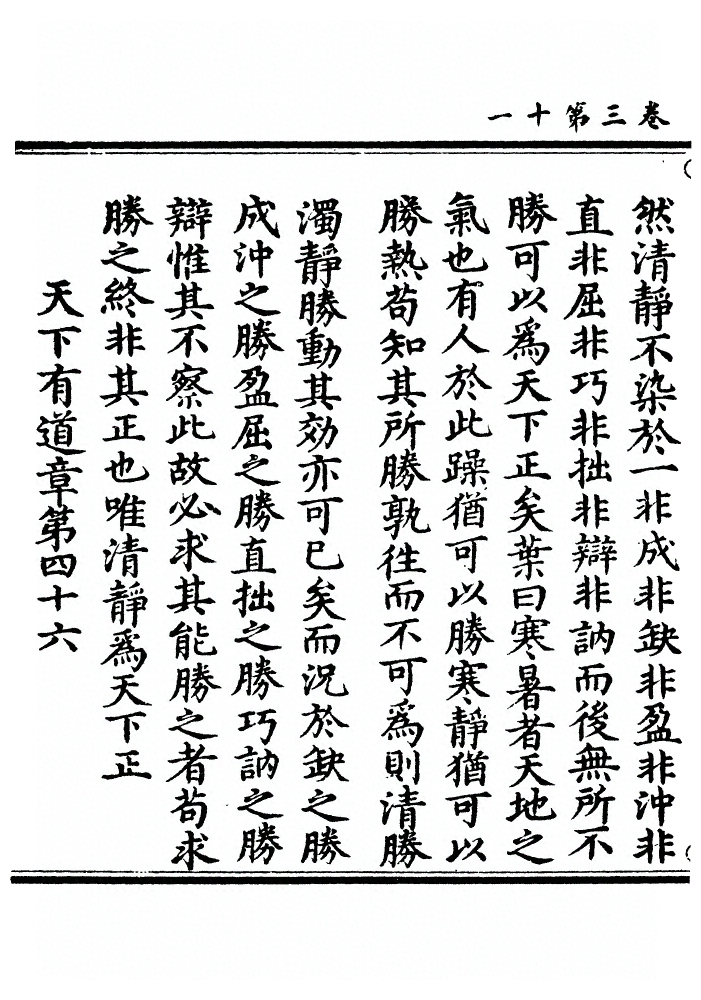 卷三第十一
然清靜不染於一非成非缺非盈非沖非
直非屈非巧非拙非辯非訥而後無所不
勝可以為天下正矣葉曰寒暑者天地之
氣也有人於此躁猶可以勝寒靜猶可以
勝熱苟知其所勝孰徃而不可為則清勝
濁靜勝動其効亦可已矣而況於缺之勝
成沖之勝盈屈之勝直拙之勝巧訥之勝
辯惟其不察此故必求其能勝之者苟求
勝之終非其正也唯清靜為天下正
天下有道章第四十六